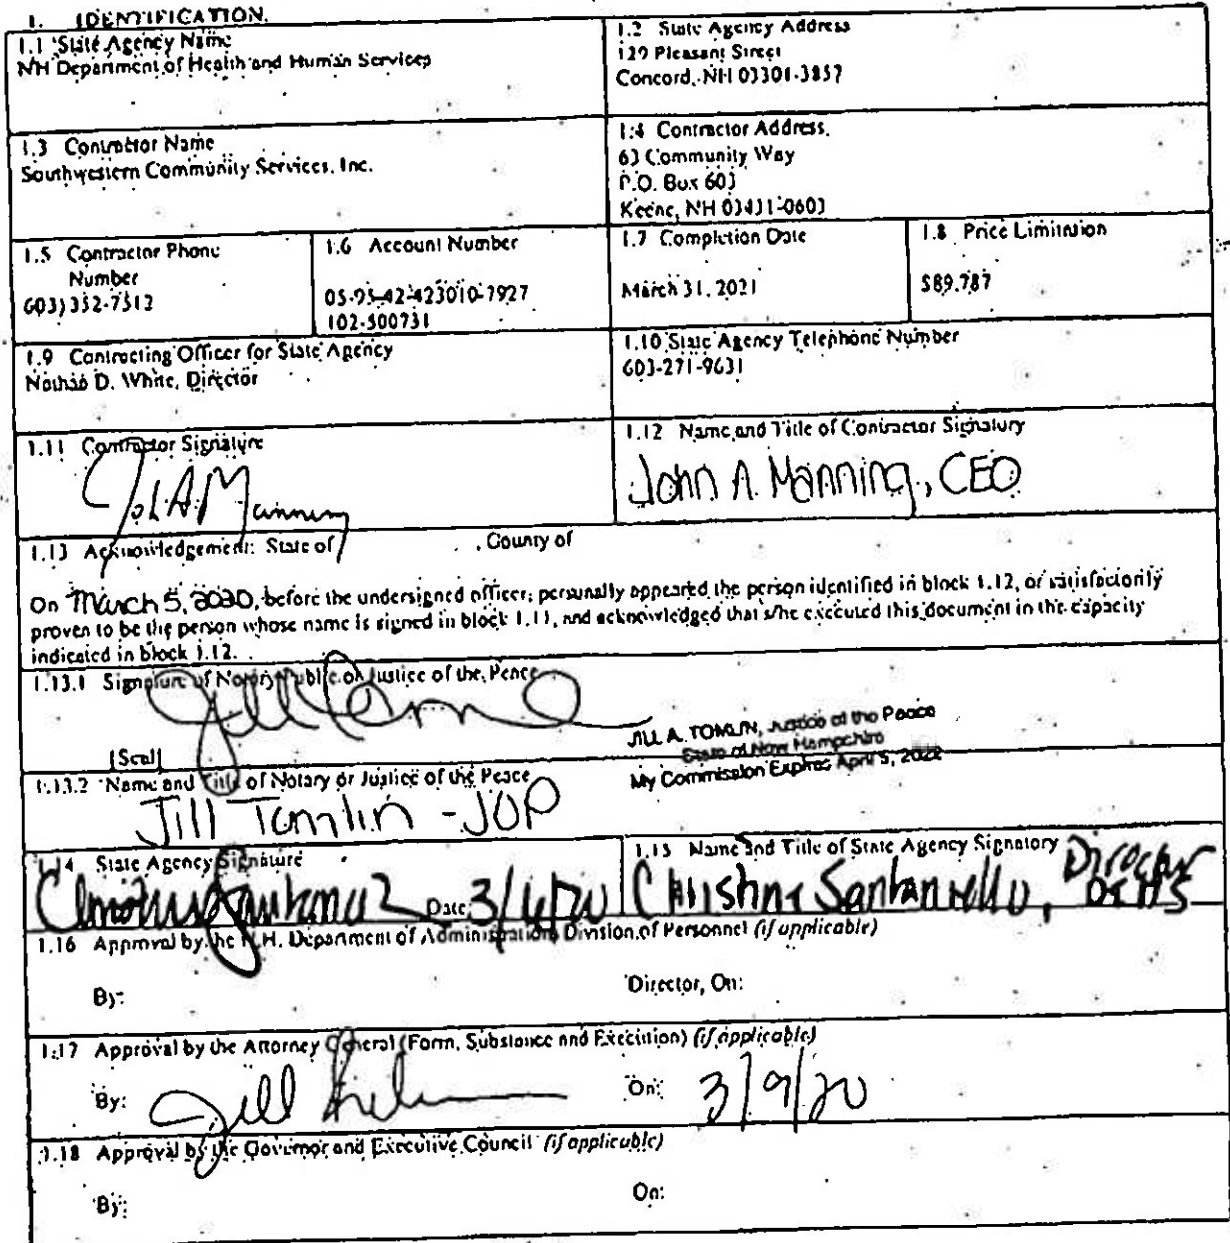 1. IDENTIFICATION.
1.1 State Agency Name
NH Department of Health and Human Services
1.2 State Agency Address
129 Pleasant Street
Concord, NH 03301-3857
1.3 Contractor Name
Southwestern Community Services, Inc.
1.4 Contractor Address.
63 Community Way
P.O. Box 603
Keene, NH 03431-0603
1.5 Contractor Phone
Number
603) 352-7512
1.6 Account Number
05-95-42-423010-7927
102-500731
1.7 Completion Date
March 31, 2021
1.8 Price Limitation
$89,787
1.9 Contracting Officer for State Agency
Nathan D. White, Director
1.10 State Agency Telephone Number
603-271-9631
1.11 Contractor Signature
John A. Manning
1.12 Name and Title of Contractor Signatory
John A. Manning, CEO
1.13 Acknowledgement: State of , County of
On March 5, 2020, before the undersigned officer, personally appeared the person identified in block 1.12, or satisfactorily
proven to be the person whose name is signed in block 1.11, and acknowledged that s/he executed this document in the capacity
indicated in block 1.12.
1.13.1 Signature of Notary Public or Justice of the Peace
[Seal]
JILL A. TOMLIN, Justice of the Peace
State of New Hampshire
My Commission Expires April 5, 2022
1.13.2 Name and Title of Notary or Justice of the Peace
Jill Tomlin - JOP
1.14 State Agency Signature
Date: 3/6/20
1.15 Name and Title of State Agency Signatory
Christine Santaniello, Director
1.16 Approval by the N.H. Department of Administration, Division of Personnel (if applicable)
By: Director, On:
1.17 Approval by the Attorney General (Form, Substance and Execution) (if applicable)
By: On: 3/9/20
1.18 Approval by the Governor and Executive Council (if applicable)
By: On: